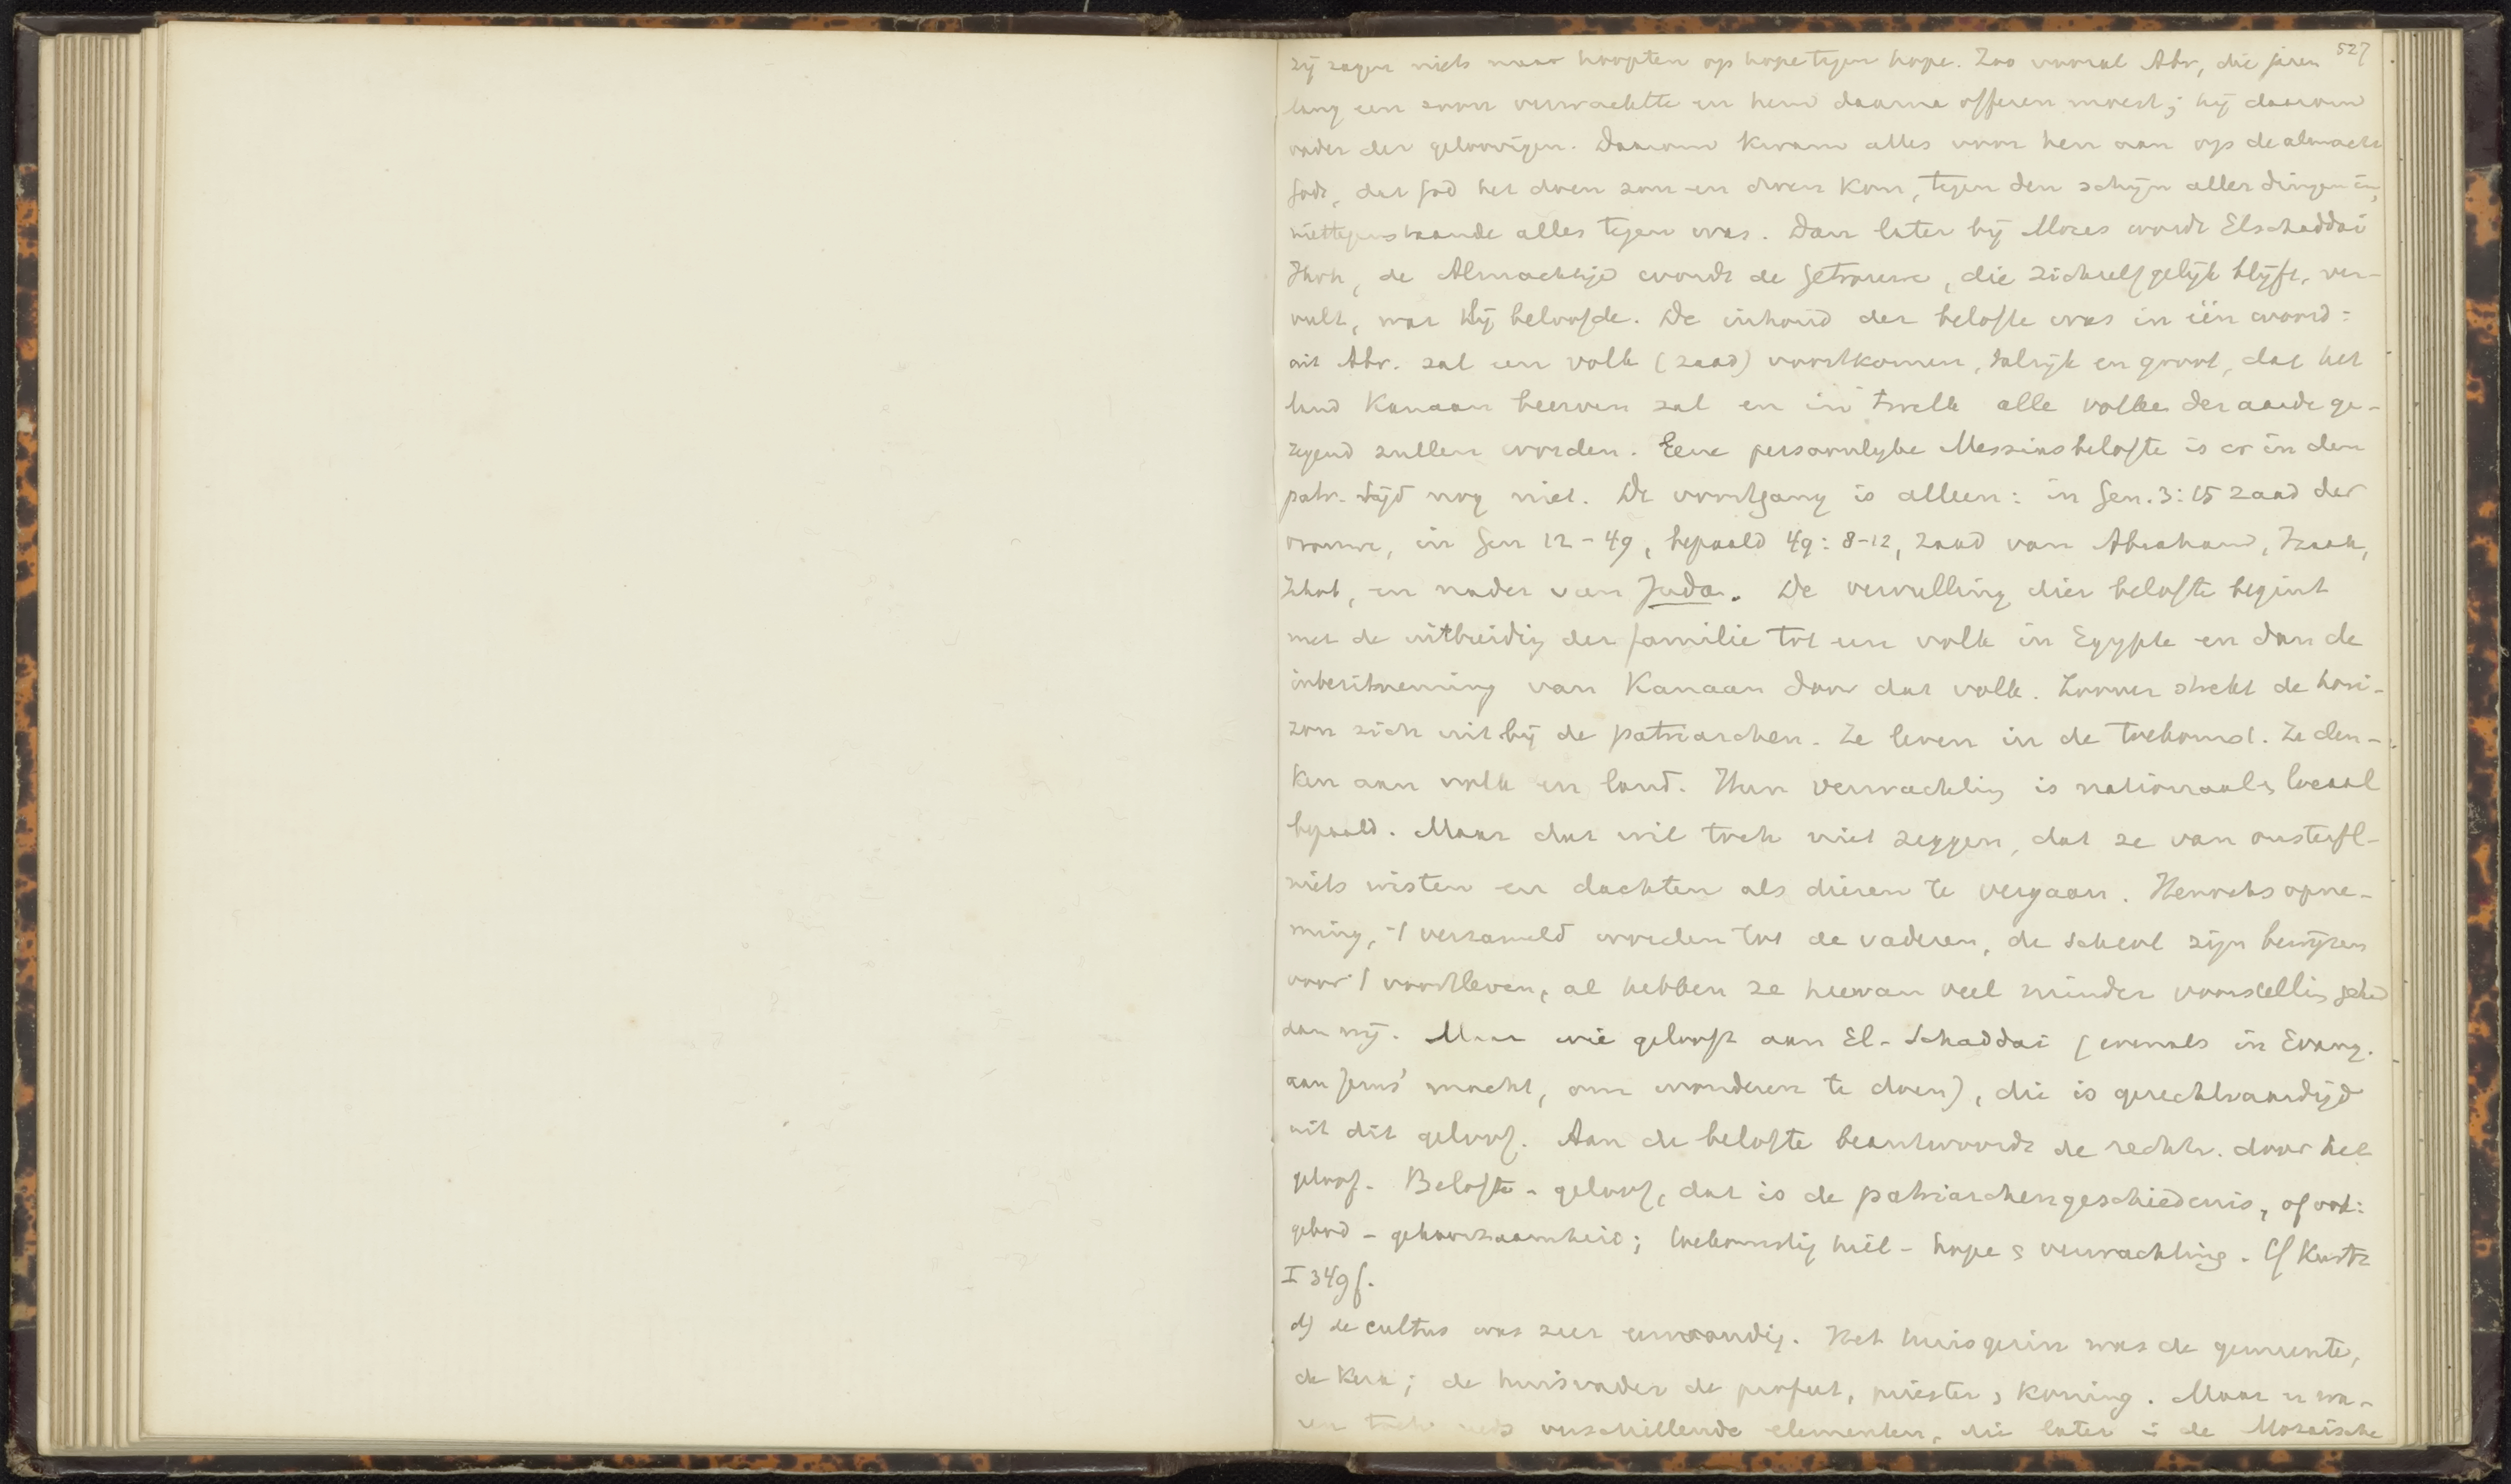 527
zij zagen niets maar hoopten op hope tegen hope. Zoo vooral Abr, die jaren
lang een zoon verwachtte en hem daarna offeren moest; hij daarom
vader der geloovigen. Daarom kwam alles voor hen aan op de almacht
Gods, dat God het doen zou en doen kon, tegen den schijn aller dingen in,
niettegenstaande alles tegen was. Dan later bij Mozes wordt Elschaddai
Jhvh, de Almachtige wordt de Getrouwe, die zichzelf gelijk blijft, ver-
vult, wat Hij beloofde. De inhoud der belofte was in één woord:
uit Abr. zal een volk (zaad) voortkomen, talrijk en groot, dat het
land Kanaan beerven zal en in 'twelk alle volken der aarde ge-
zegend zullen worden. Eene persoonlijke Messiasbelofte is er in den
patr. tijd nog niet. De voortgang is alleen: in Gen. 3:15 zaad der
vrouw, in Gen 12-49, bepaald 49:8-12, zaad van Abraham, Izaak,
Jakob, en nader van Juda. De vervulling dier belofte begint
met de uitbreidig der familie tot een volk in Egypte en dan de
inbezitneming van Kanaan door dat volk. Zoover strekt de hori-
zon zich uit bij de patriarchen. Ze leven in de toekomst. Ze den-
ken aan volk en land. Hun verwachting is nationaal & locaal
bepaald. Maar dat wil toch niet zeggen, dat ze van onsterfl-
niets wisten en dachten als dieren te vergaan. Henochs opne-
ming, 't verzameld worden tot de vaderen, de scheol zijn bewijzen
voor 't voortleven, al hebben ze hiervan veel minder voorstelling gehad
dan wij. Maar wie gelooft aan El-Schaddai (evenals in Evang.
aan Jezus' macht, om wonderen te doen), die is gerechtvaardigd
uit dit geloof. Aan de belofte beantwoordt de rechtv. door het
geloof. Belofte - geloof, dat is de patriarchengeschiedenis, of ook:
gebod - gehoorzaamheid; toekomstig heil - hope & verwachting. Cf Kurtz
I 349 f.
d) de cultus was zeer eenvoudig. Het huisgezin was de gemeente,
de kerk; de huisvader de profeet, priester, koning. Maar er wa-
ren toch reeds verschillende elementen, die later in de Mozaische